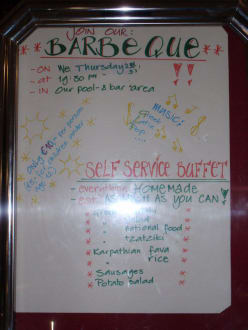 JOIN OUR:
BARBEQUE
- ON We Thursday
- at 19:30 pm
- IN Our pool-& bar area
MUSIC:
Greek
Latin
Pop
only €10- per person
for children under
SELF SERVICE BUFFET
- everything HOMEMADE
- eat AS MUCH AS YOU CAN!
national food
" tzatziki
* Karpathian fava
" rice
* Sausages
* Potato Salad